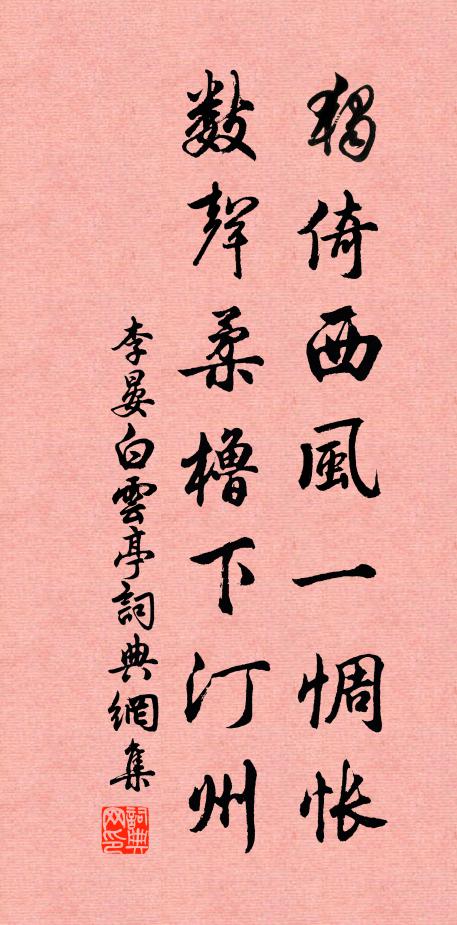 獨倚西風一惆悵
數聲柔櫓下汀州
李晏白雲亭詞典網集
詞典网印